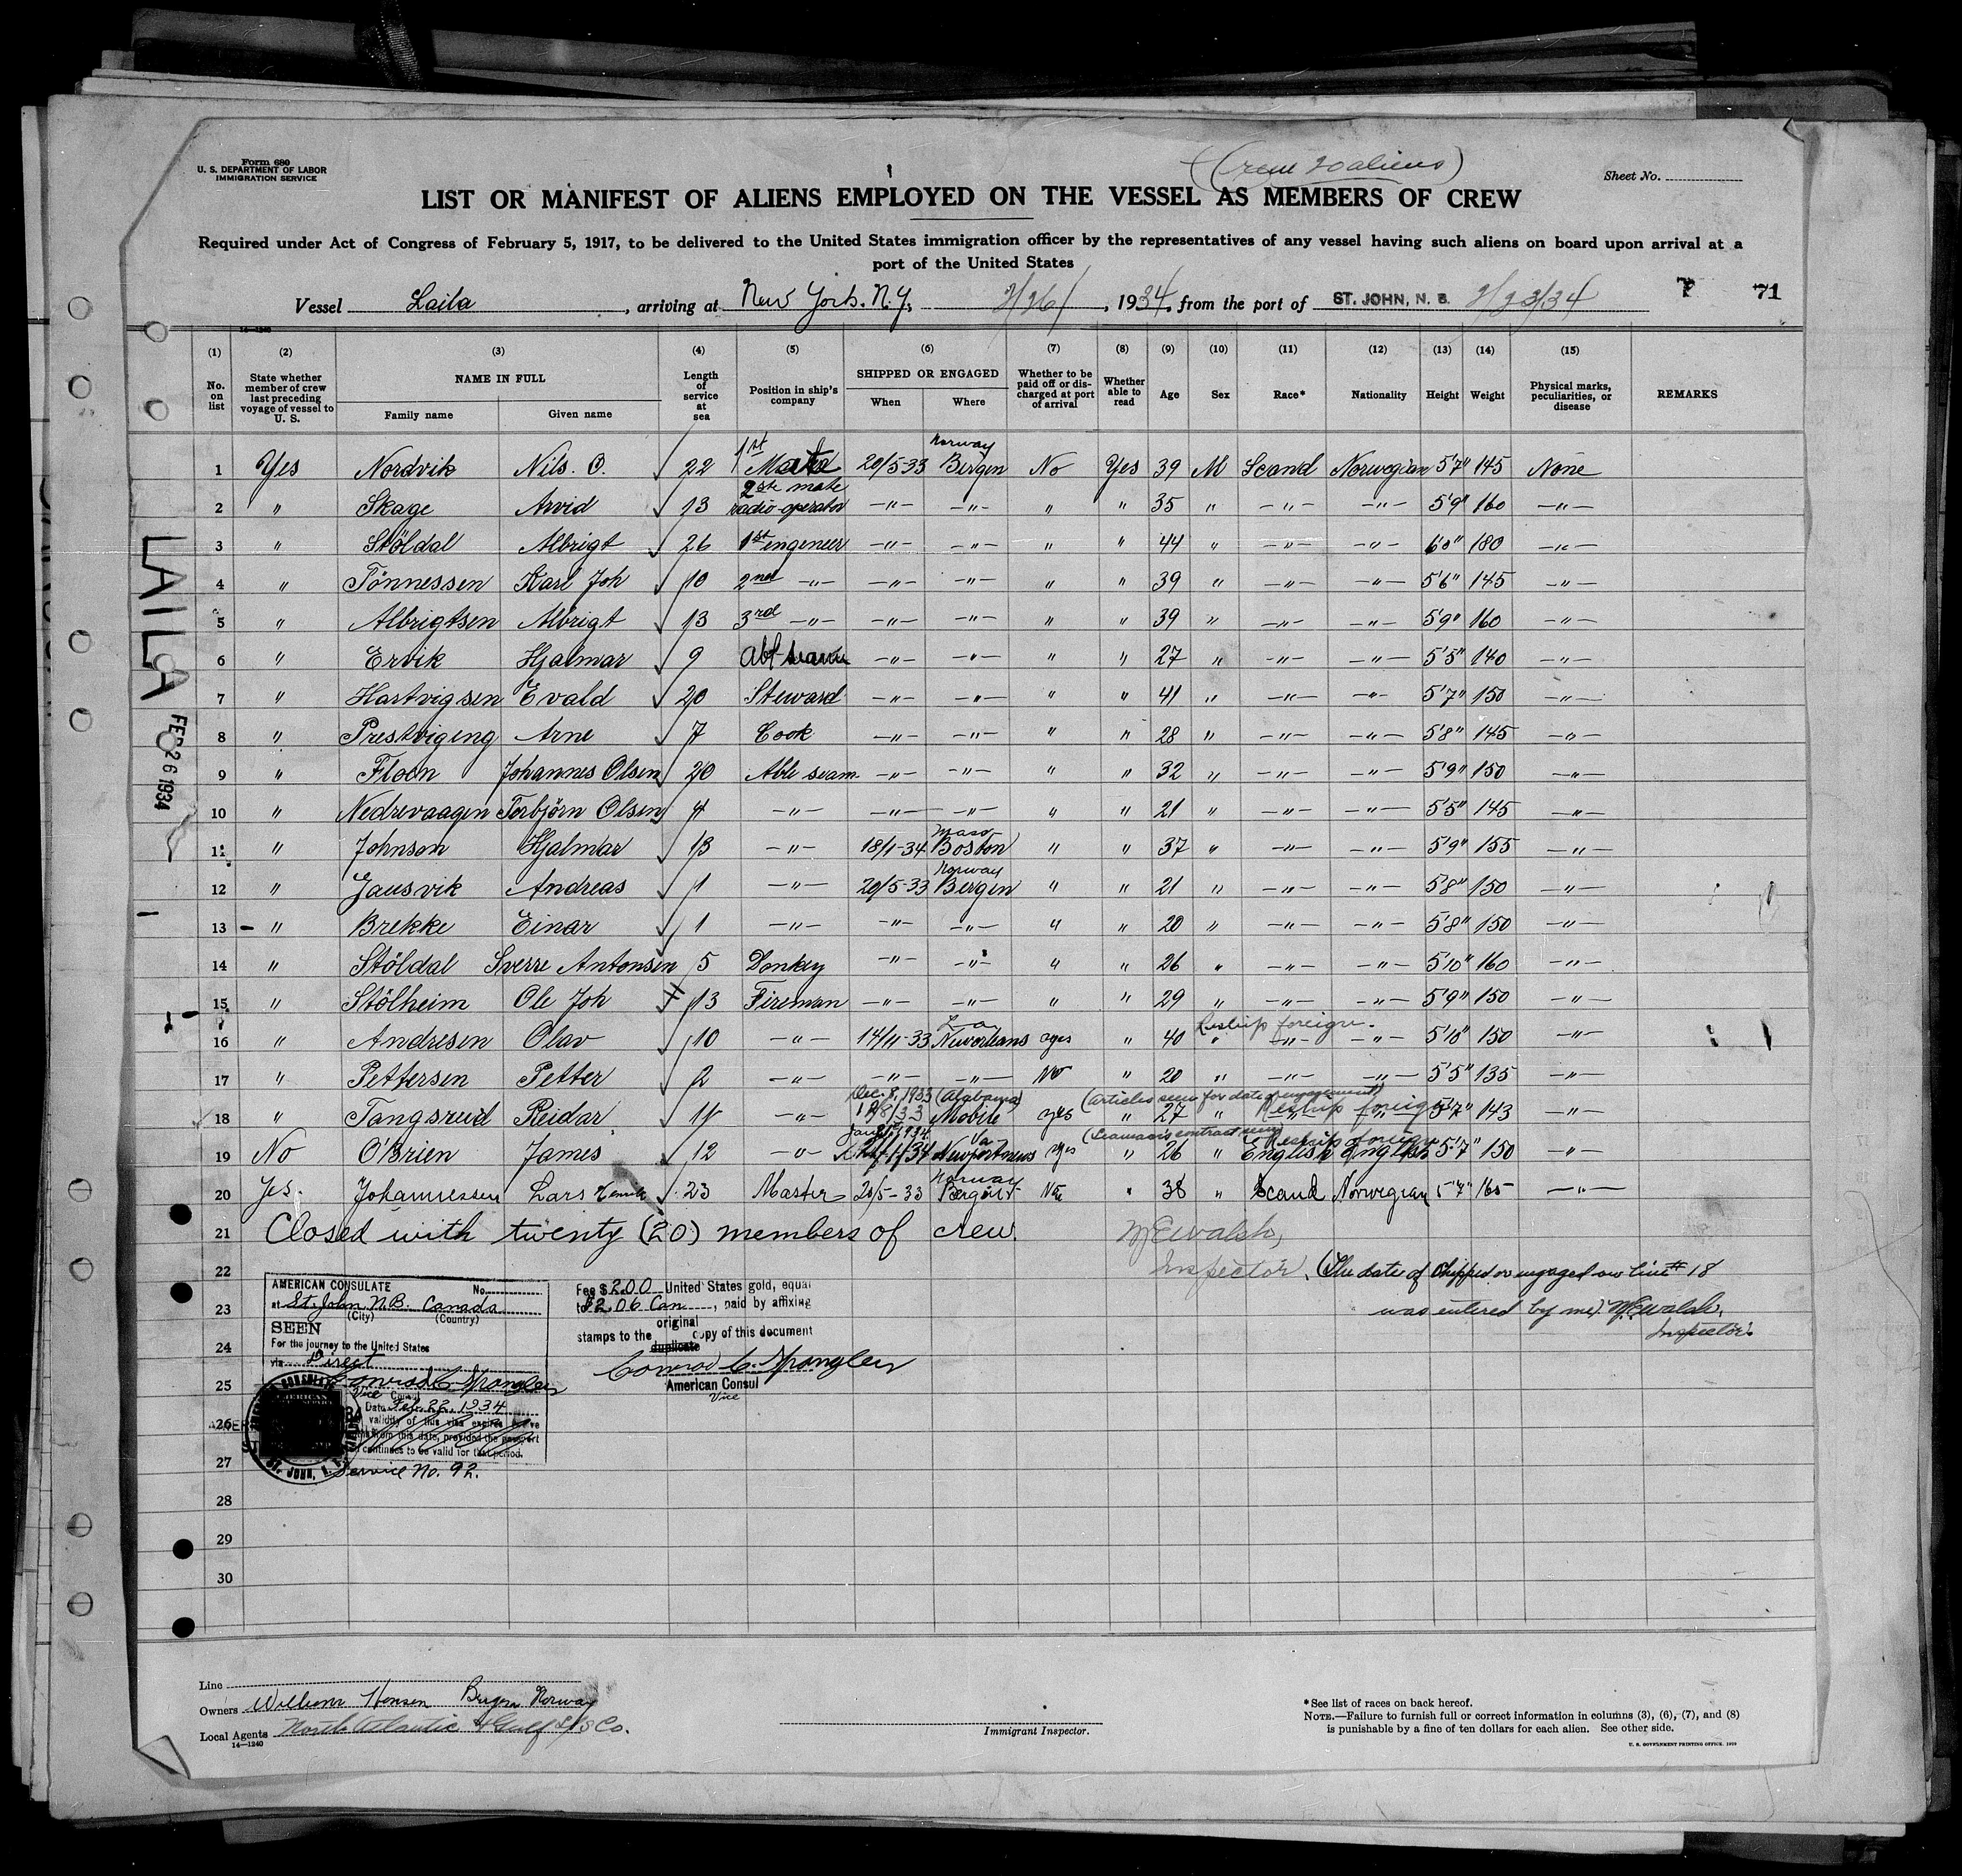 Form 680
U. S. DEPARTMENT OF LABOR
IMMIGRATION SERVICE
(Crew 20 aliens)
Sheet No.
LIST OR MANIFEST OF ALIENS EMPLOYED ON THE VESSEL AS MEMBERS OF CREW
Required under Act of Congress of February 5, 1917, to be delivered to the United States immigration officer by the representatives of any vessel having such aliens on board upon arrival at a
port of the United States
Vessel Laila, arriving at New York. N.Y. 2/26/, 1934, from the port of ST. JOHN, N. B. 2/23/34 71
14—1240
(1) (2) (3) (4) (5) (6) (7) (8) (9) (10) (11) (12) (13) (14) (15)
No. on list State whether member of crew last preceding voyage of vessel to U. S. NAME IN FULL Family name Given name Length of service at sea Position in ship's company SHIPPED OR ENGAGED When Where Whether to be paid off or discharged at port of arrival Whether able to read Age Sex Race* Nationality Height Weight Physical marks, peculiarities, or disease REMARKS
1 Yes Nordvik Nils. O. ✓ 22 1st Mate 20/5-33 Norway Bergen No Yes 39 M Scand Norwegian 5'7" 145 None
2 " Skage Arvid ✓ 13 2nd mate radio-operator —"— —"— " " 35 " —"— —"— 5'9" 160 —"—
3 " Stöldal Albrigt ✓ 26 1st engeneer —"— —"— " " 44 " —"— —"— 6'0" 180 —"—
4 " Tönnessen Karl Joh ✓ 10 2nd —"— —"— —"— " " 39 " —"— —"— 5'6" 145 —"—
5 " Albrigtsen Albrigt ✓ 13 3rd —"— —"— —"— " " 39 " —"— —"— 5'9" 160 —"—
6 " Ervik Hjalmar ✓ 9 Abl seam —"— —"— " " 27 " —"— —"— 5'5" 140 —"—
7 " Hartvigsen Evald ✓ 20 Steward —"— —"— " " 41 " —"— —"— 5'7" 150 —"—
8 " Prestvigeng Arne ✓ 7 Cook —"— —"— " " 28 " —"— —"— 5'8" 145 —"—
9 " Floen Johannes Olsen ✓ 20 Able seam —"— —"— " " 32 " —"— —"— 5'9" 150 —"—
10 " Nedrevaagen Torbjörn Olsen ✓ 4 —"— —"— —"— " " 21 " —"— —"— 5'5" 145 —"—
11 " Johnson Hjalmar ✓ 13 —"— 18/1-34 Mass Boston " " 37 " —"— —"— 5'9" 155 —"—
12 " Jausvik Andreas ✓ 1 —"— 20/5-33 Norway Bergen " " 21 " —"— —"— 5'8" 150 —"—
13 " Brekke Einar ✓ 1 —"— —"— —"— " " 20 " —"— —"— 5'8" 150 —"—
14 " Stöldal Sverre Antonsen ✓ 5 Donkey —"— —"— " " 26 " —"— —"— 5'10" 160 —"—
15 " Stölheim Ole Joh ✓ 13 Fireman —"— —"— " " 29 " —"— —"— 5'9" 150 —"—
16 " Andresen Olav ✓ 10 —"— 14/11-33 La Neworleans yes " 40 " Reship foreign. —"— —"— 5'10" 150 —"—
17 " Pettersen Petter ✓ 2 —"— —"— —"— No " 20 " —"— —"— 5'5" 135 —"—
Dec. 8, 1933 (Alabama) (articles seen for date of engagement)
18 " Tangsrud Reidar ✓ 11 —"— Mobile yes " 27 " Reship foreign 5'7" 143 —"—
(Seaman's contract seen) Reship foreign
19 No O'Brien James ✓ 12 —"— /1/34 Va Newportnews yes " 26 " English English 5'7" 150 —"—
20 Yes. Johannessen Lars ✓ 23 Master 20/5-33 Norway Bergen No " 38 " Scand Norwegian 5'7" 165 —"—
21 Closed with twenty (20) members of crew. M E Walsh,
22 Inspector. (The date of shipped or engaged on line # 18
23 was entered by me) M E Walsh,
Inspector.
24
25
26
27
28
29
30
AMERICAN CONSULATE No.
at St. John N.B. Canada
(City) (Country)
SEEN
For the journey to the United States
via Direct
Conrad C. Spangler
Vice Consul
Date Feb. 22, 1934
validity of this visa expires
from this date, provided the passport
continues to be valid for that period.
Service No. 92.
Fee $2.00 United States gold, equal
to $2.06 Can, paid by affixing
original
stamps to the duplicate copy of this document
Conrad C. Spangler
American Consul
Vice
LAILA
FEB 26 1934
Line
Owners William Hansen Bergen Norway
Local Agents North Atlantic & Gulf S/S Co.
14—1240
Immigrant Inspector.
*See list of races on back hereof.
NOTE.—Failure to furnish full or correct information in columns (3), (6), (7), and (8)
is punishable by a fine of ten dollars for each alien. See other side.
U. S. GOVERNMENT PRINTING OFFICE. 1929